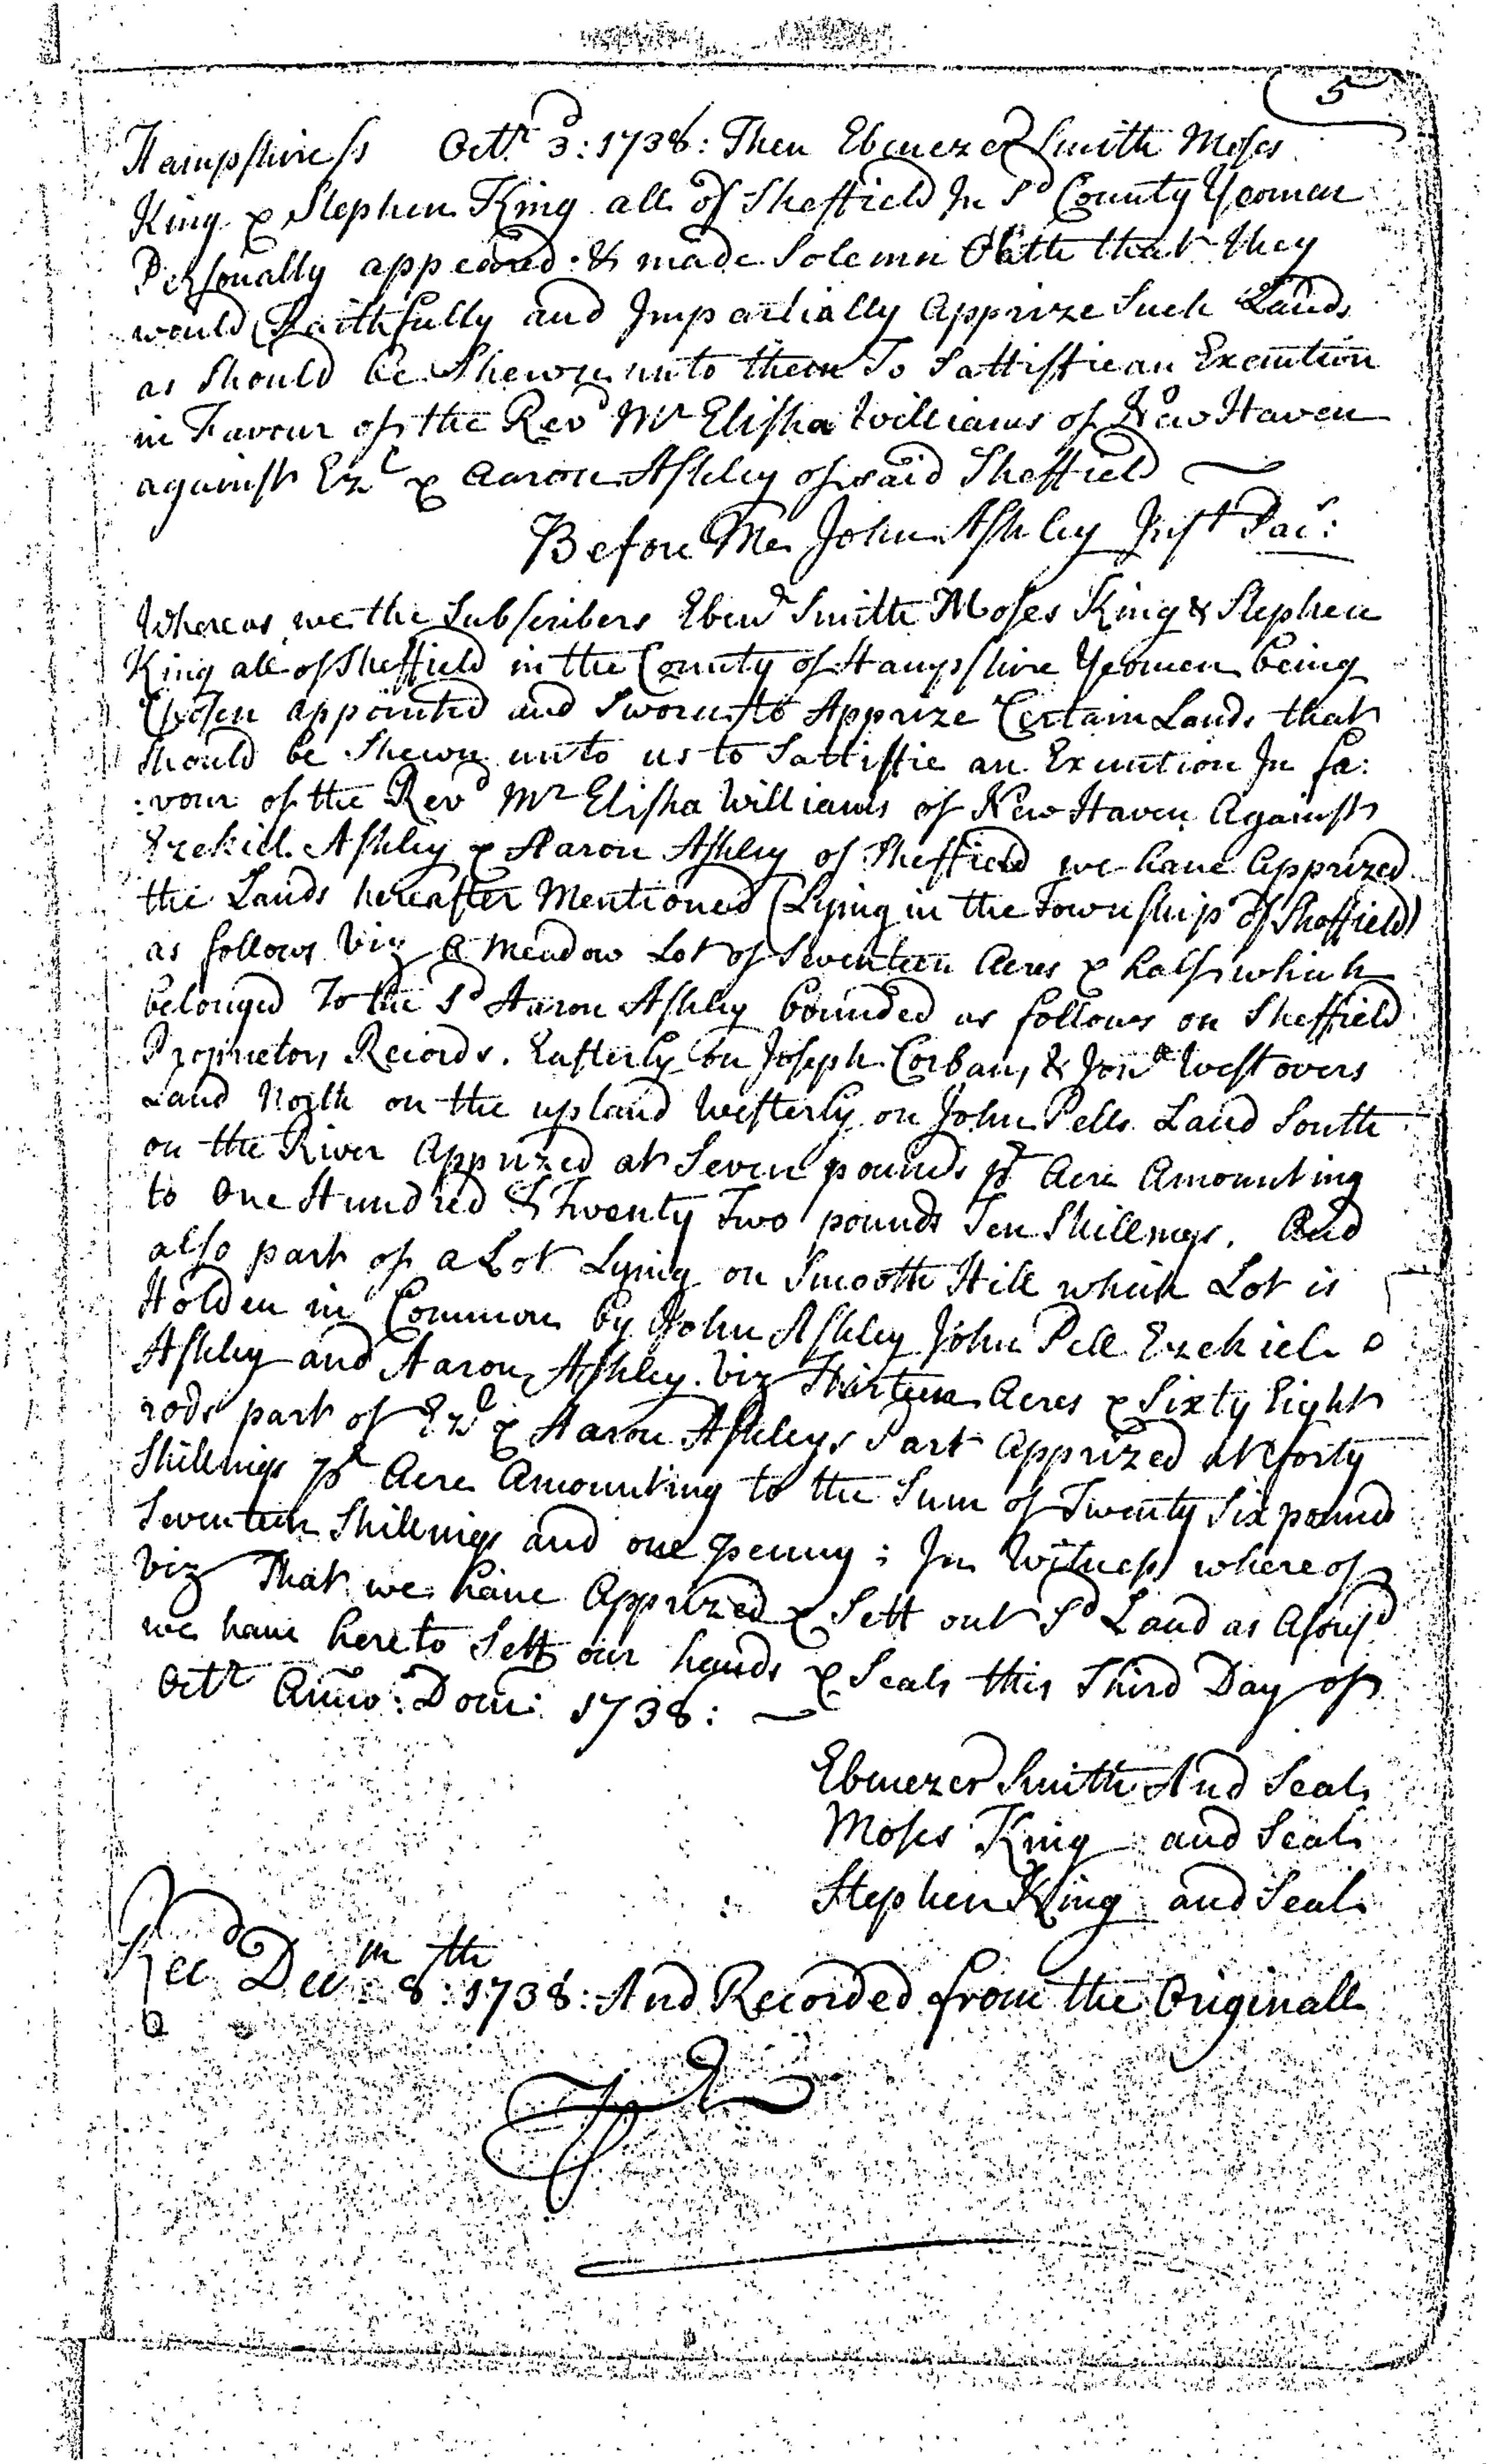 5
Hampshire ss Octr. 3: 1738: Then Ebenezer Smith Moses
King & Stephen King all of Sheffield In Sd County Yeoman
Personally appeared & made Solemn Oath that they
would Faithfully and Impartially Apprize Such Lands
as Should be Shewn unto them To Sattisfie an Execution
in Favour of the Revd Mr Elisha Williams of New Haven
against Ezl & Aaron Ashley of said Sheffield
Before Me John Ashley Just Pacs:
Whereas we the Subscribers Ebenr Smith Moses King & Stephen
King all of Sheffield in the County of Hampshire Yeomen being
Chosen appointed and Sworn to Apprize Certain Lands that
Should be Shewn unto us to Sattisfie an Execution In fa:
:vour of the Revd Mr Elisha Williams of New Haven Against
Ezekiell Ashley & Aaron Ashley of Sheffield we have Apprized
the Lands hereafter Mentioned (Lying in the Township of Sheffield)
as follows Viz A Meadow Lot of Seventeen Acres & half which
belonged To the Sd Aaron Ashley bounded as follows on Sheffield
Proprietors Records. Easterly on Joseph Corbans & Jona Westovers
Land North on the upland Westerly on John Pells Land South
on the River Apprized at Seven pounds pr Acre Amounting
to One Hundred & Twenty Two pounds Ten Shillings. And
also part of a Lot Lying on Smooth Hill which Lot is
Holden in Common by John Ashley John Pell Ezekiel
Ashley and Aaron Ashley. Viz Thirteen Acres & Sixty Eight
rods part of Ezl & Aaron Ashleys Part Apprized at forty
Shillings pr Acre Amounting to the Sum of Twenty Six pound
Seventeen Shillings and one penny; In Witness whereof
Viz That we have Apprized & Sett out Sd Land as Aforsd
we have hereto Sett our hands & Seals this Third Day of
Octr Anno: Dom: 1738:
Ebenezer Smith And Seal
Moses King and Seal
Stephen King and Seal
Recd Decm 8th: 1738: And Recorded from the Originall